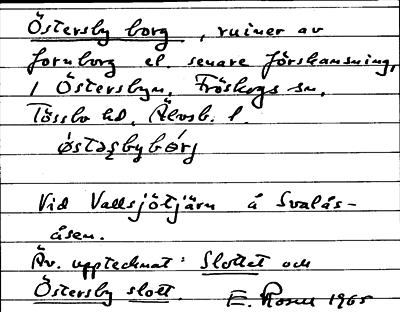 Östersby borg, ruiner av
fornborg el. senare förskansning,
i Östersbyn, Fröskogs sn,
Tössbo hd, Älvsb. l.
östəʂbybórj
Vid Vallsjötjärn å Svalås-
åsen.
Äv. upptecknat: Slottet och
Östersby slott. E. Rosell 1965